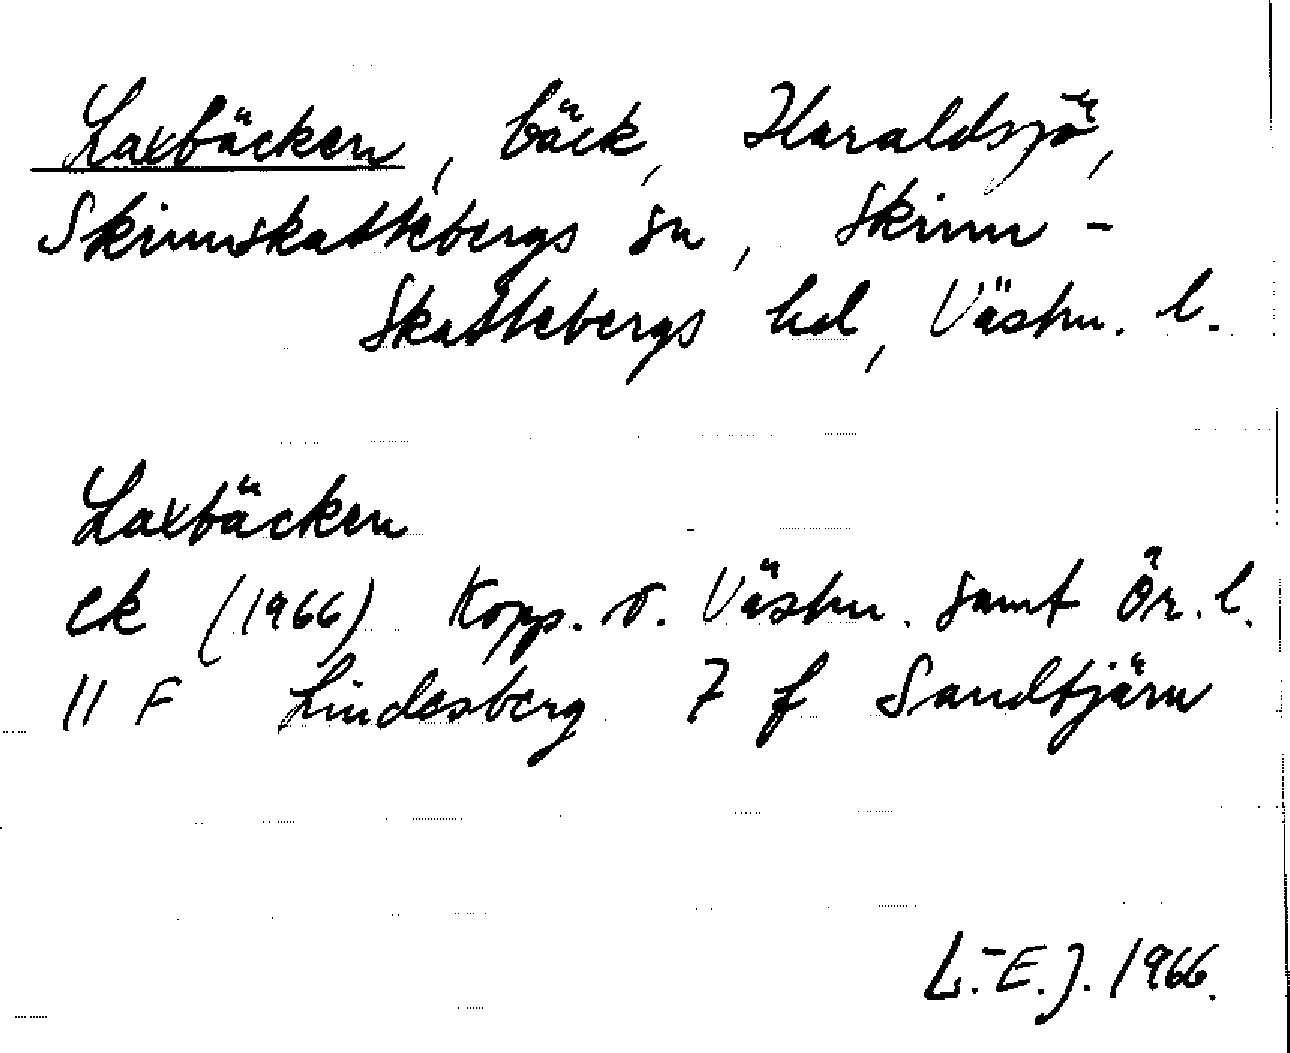 Laxbäcken, bäck, Haraldsjö,
Skinnskattebergs sn, Skinn-
skattebergs hd, Västm. l.
Laxbäcken
ek (1966) Kopp. o. Västm. samt Ör. l.
11 F Lindesberg 7 f Sandtjärn
L.-E.J. 1966.